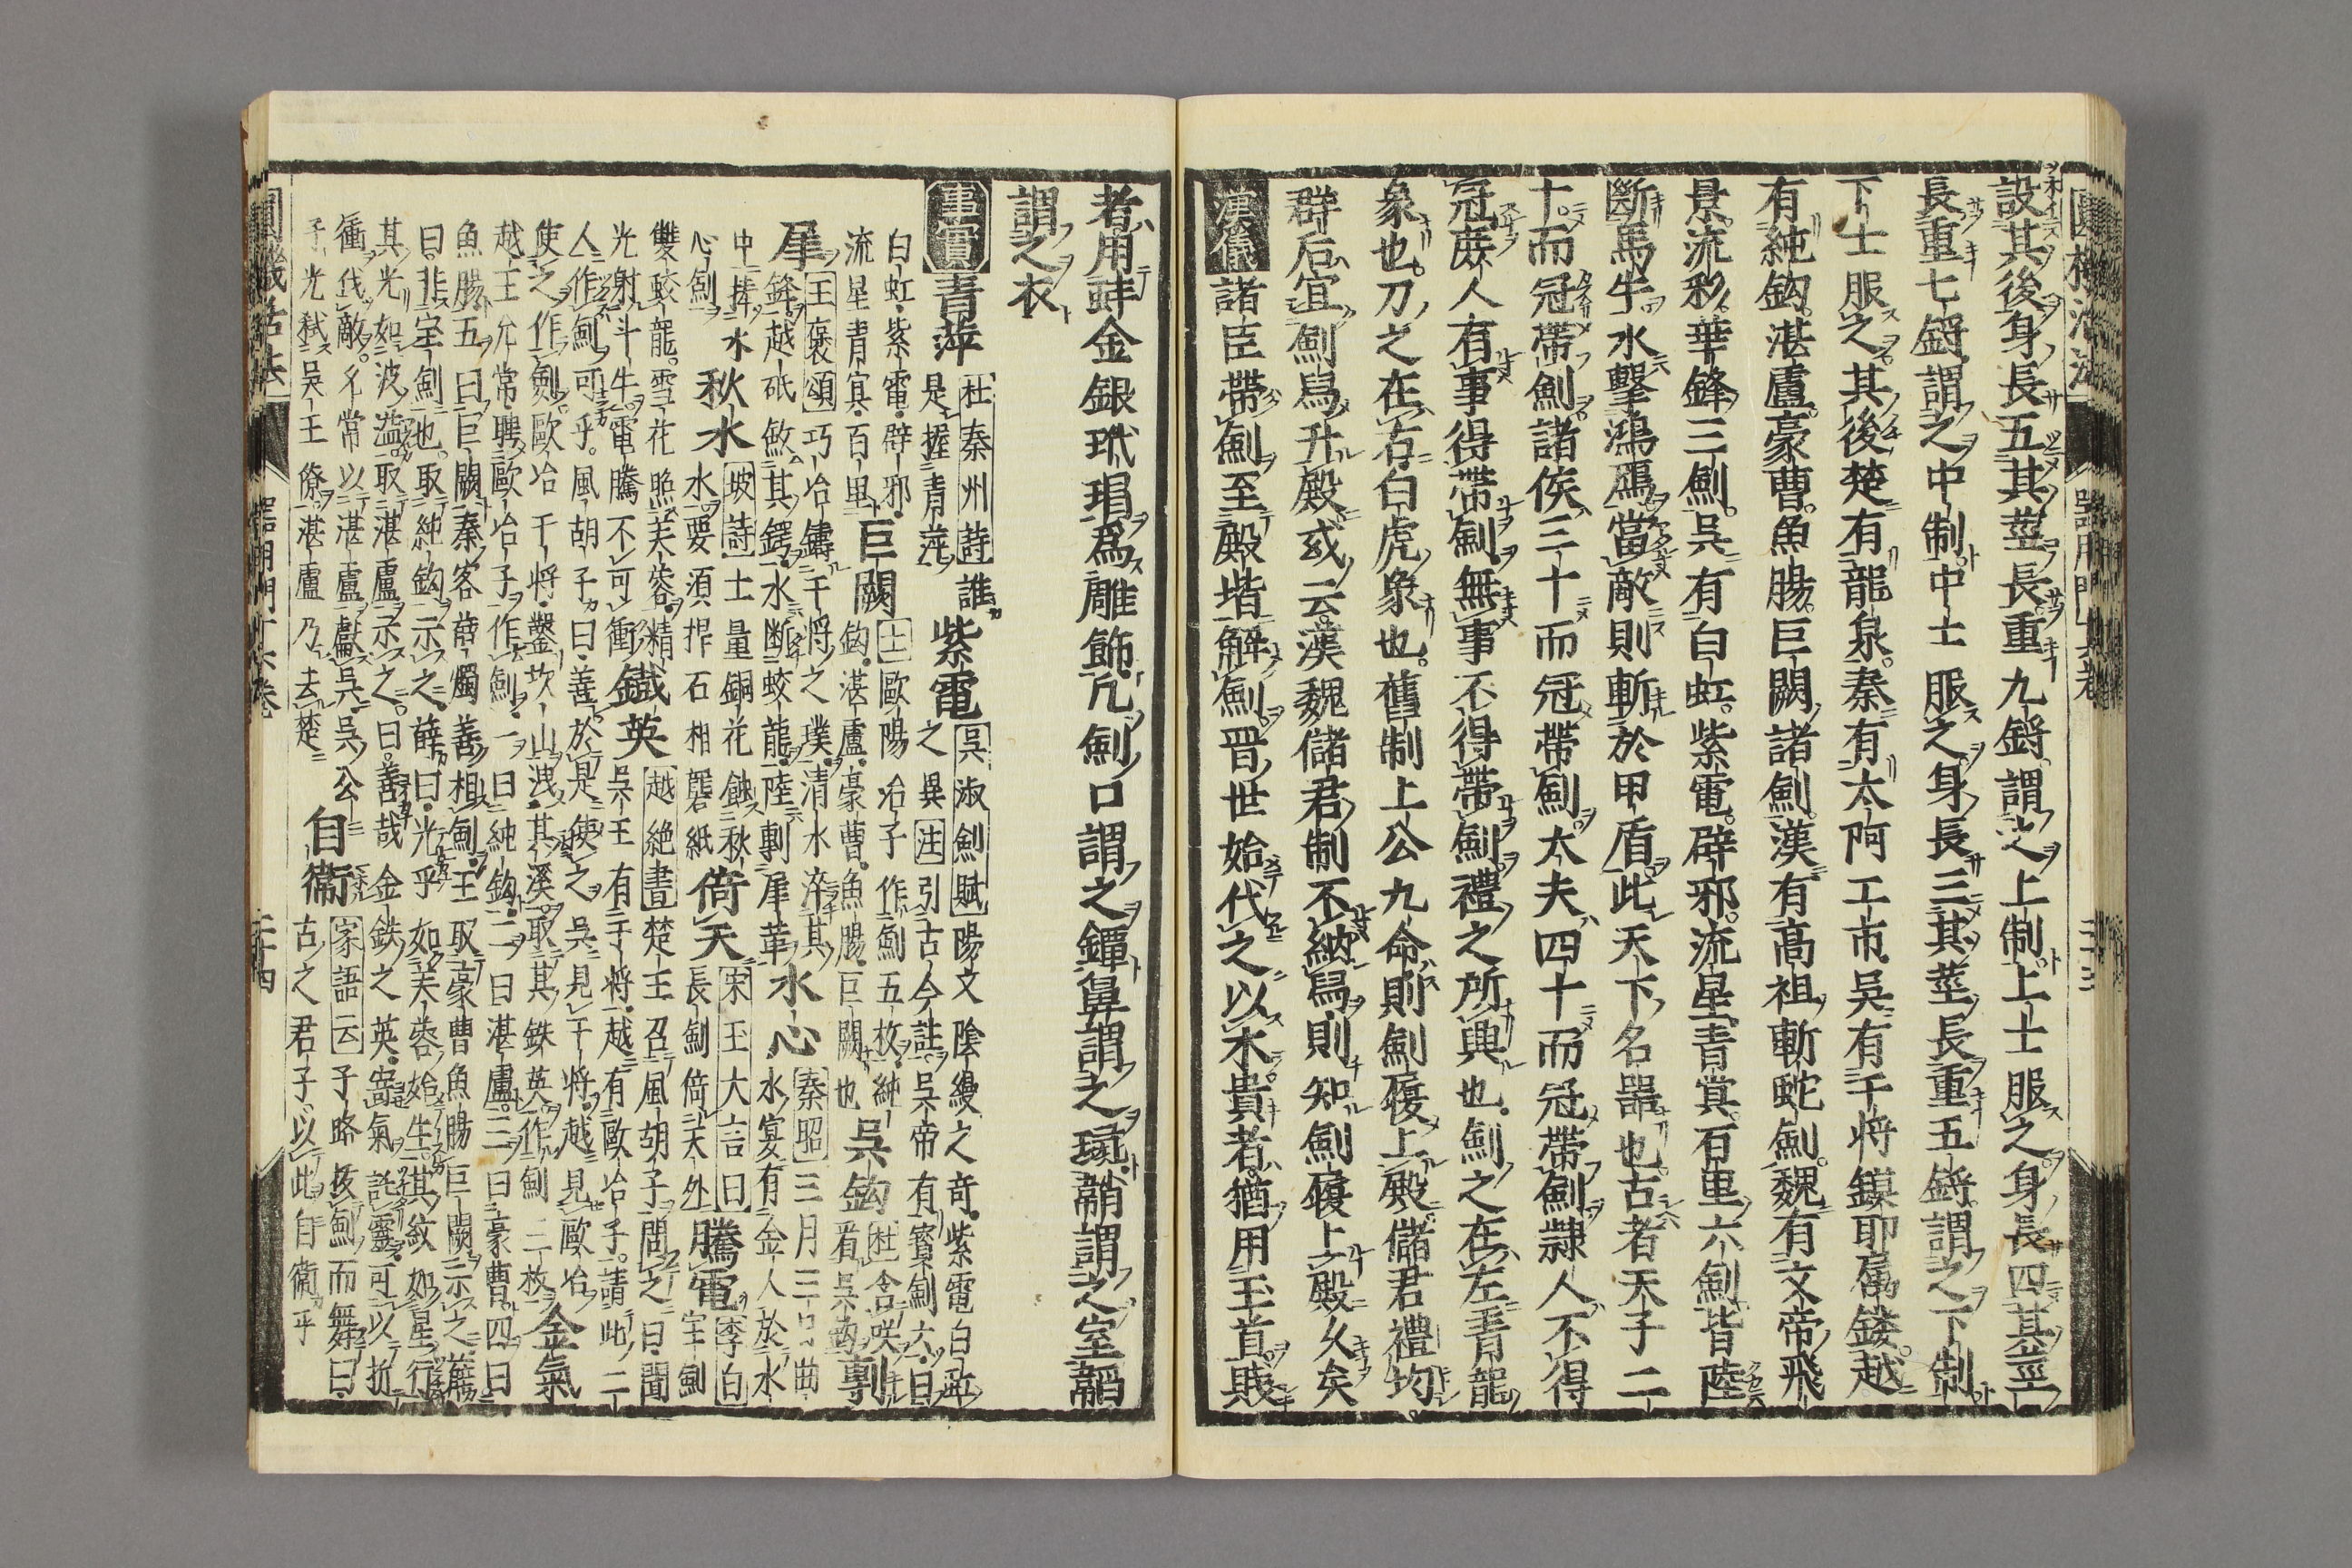 設其後身長五其莖長重九鋝謂之上制上士服之身長四其莖
長重七鋝謂之中制中士服之身長三其莖長重五鋝謂之下制
下士服之其後楚有龍泉秦有太阿工市吳有干將鏌耶屬鏤越
有純鈎湛盧豪曹魚腸巨闕諸劍漢有高祖斬蛇劍魏有文帝飛
景流彩華鋒三劍吳有白虹紫電辟邪流星青冥百里六劍皆陸
斷馬牛水擊鴻鴈當敵則斬於甲盾此天下名器也古者天子二
十而冠帶劍諸侯三十而冠帶劍大夫四十而冠帶劍隷人不得
冠庶人有事得帶劍無事不得帶劍禮之所興也劍之在左青龍
象也刀之在右白虎象也舊制上公九命則劍履上殿儲君禮均
群后宜劍舄升殿或云漢魏儲君制不納舄則知劍履上殿久矣
漢儀諸臣帶劍至殿堦解劍晋世始代之以木貴者猶用玉首賤
者用蚌金銀玳瑁爲雕飾凡劍口謂之鐔鼻謂之璏鞘謂之室韜
謂之衣
事實 青萍 杜秦州詩 誰是握青萍 紫電 吳淑劍賦 陽文陰縵之奇紫電白虹之異 注 引古今註吳帝有寶劍六曰
白虹紫電辟邪流星青冥百里 巨闕 歐陽冶子作劍五枚純鈎湛盧豪曹魚腸巨闕也 吳鈎 杜 含咲看吳鈎 剸
犀 王褒頌 巧冶鑄干將之璞清水淬其鋒越砥斂其鍔水断蛟龍陸剸犀革 水心 秦昭 三月三日曲水宴有金人於水
中捧水心劍 秋水 坡詩 士量銅花蝕秋水要須捍石相磨紙 倚天 宋玉大言曰 長劍倚天外 騰電 李白 宝劍
雙蛟龍雪花照芙蓉精光射斗牛電騰不可衝 鐵英 越絶書 楚王召風胡子問之曰聞吳王有干將越有歐冶子請此二
人作劍可乎風胡子曰善於是使之吳見干將越見歐冶使之作劍歐冶干將鑿坎山洩其溪取其鉄英作劍三枚 金氣
越王允常聘歐冶子作劍一曰純鈎二曰湛盧三曰豪曹四曰魚腸五曰巨闕秦客薛燭善相劍王取豪曹魚腸巨闕示之薛
曰非宝劍也取純鈎示之薛曰光乎如芙蓉始生其紋如星行其光如波溢取湛盧示之曰善哉金鉄之英寄氣託靈可以折
衝伐敵允常以湛盧獻吳吳公子光弑吳王僚湛盧乃去楚 自衞 家語云 子路拔劍而舞曰古之君子以此自衞乎